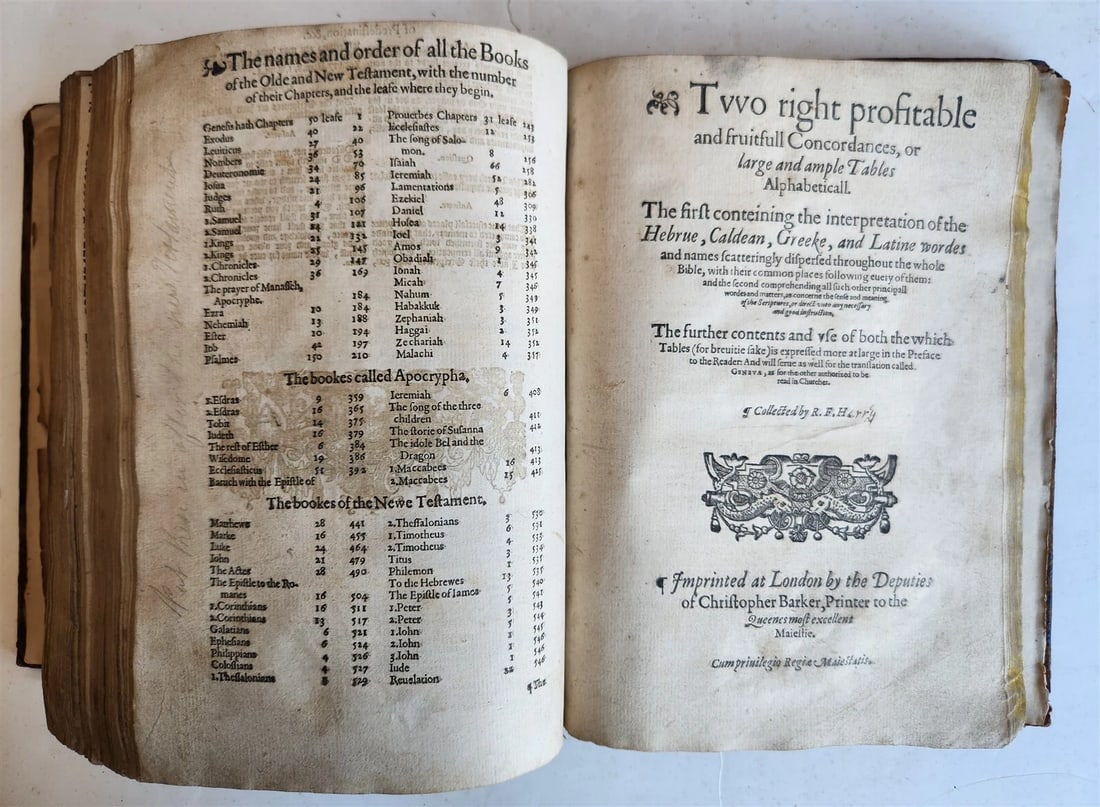 The names and order of all the Books
of the Olde and New Teſtament, with the number
of their Chapters, and the leafe where they begin.
Geneſis hath Chapters 50 leafe 1
Exodus 40 22
Leuiticus 27 40
Nombers 36 53
Deuteronomie 34 70
Ioſua 24 85
Iudges 21 96
Ruth 4 106
1.Samuel 31 107
2.Samuel 24 121
1.Kings 22 132
2.Kings 25 145
1.Chronicles 29
2.Chronicles 36 169
The prayer of Manaſſeh,
Apocryphe. 184
Ezra 10 184
Nehemiah 13 188
Eſter 10 194
Iob 42 197
Pſalmes 150 210
Prouerbes Chapters 31 leafe 243
Eccleſiaſtes 12 253
The ſong of Salo-
mon. 8 256
Iſaiah 66 258
Ieremiah 52 282
Lamentations 5 306
Ezekiel 48 309
Daniel 12 330
Hoſea 14 338
Ioel 3 341
Amos 9 342
Obadiah 1 345
Ionah 4 345
Micah 7 346
Nahum 3 349
Habakkuk 3 349
Zephaniah 3 351
Haggai 2 352
Zechariah 14 352
Malachi 4 357
The bookes called Apocrypha.
1.Eſdras 9 359
2.Eſdras 16 365
Tobit 14 375
Iudeth 16 379
The reſt of Eſther 6 384
Wiſedome 19 386
Eccleſiaſticus 51 392
Baruch with the Epiſtle of
Ieremiah 6 408
The ſong of the three
children 411
The ſtorie of Suſanna 412
The idole Bel and the
Dragon 413
1.Maccabees 16 413
2.Maccabees 15 425
The bookes of the Newe Teſtament.
Matthewe 28 441
Marke 16 455
Luke 24 464
Iohn 21 479
The Actes 28 490
The Epiſtle to the Ro-
manes 16 504
1.Corinthians 16 511
2.Corinthians 13 517
Galatians 6 521
Epheſians 6 524
Philippians 4 526
Coloſſians 4 527
1.Theſſalonians 5 529
2.Theſſalonians 3 530
1.Timotheus 6 531
2.Timotheus 4 533
Titus 3 534
Philemon 1 535
To the Hebrewes 13 535
The Epiſtle of Iames 5 540
1.Peter 5 541
2.Peter 3 543
1.Iohn 5 544
2.Iohn 1 546
3.Iohn 1 546
Iude 1 546
Reuelation 22
¶ The
Tvvo right profitable
and fruitfull Concordances, or
large and ample Tables
Alphabeticall.
The firſt conteining the interpretation of the
Hebrue, Caldean, Greeke, and Latine wordes
and names ſcatteringly diſperſed throughout the whole
Bible, with their common places following euery of them:
and the ſecond comprehending all ſuch other principall
wordes and matters, as concerne the ſenſe and meaning
of the Scriptures, or direct vnto any neceſſary
and good inſtruction.
The further contents and vſe of both the which
Tables (for breuitie ſake) is expreſſed more at large in the Preface
to the Reader: And will ſerue as well for the tranſlation called
GENEVA, as for the other authoriſed to be
read in Churches.
¶ Collected by R. F. Herry
¶ Imprinted at London by the Deputies
of Chriſtopher Barker, Printer to the
Queenes moſt excellent
Maieſtie.
Cum priuilegio Regiæ Maieſtatis.